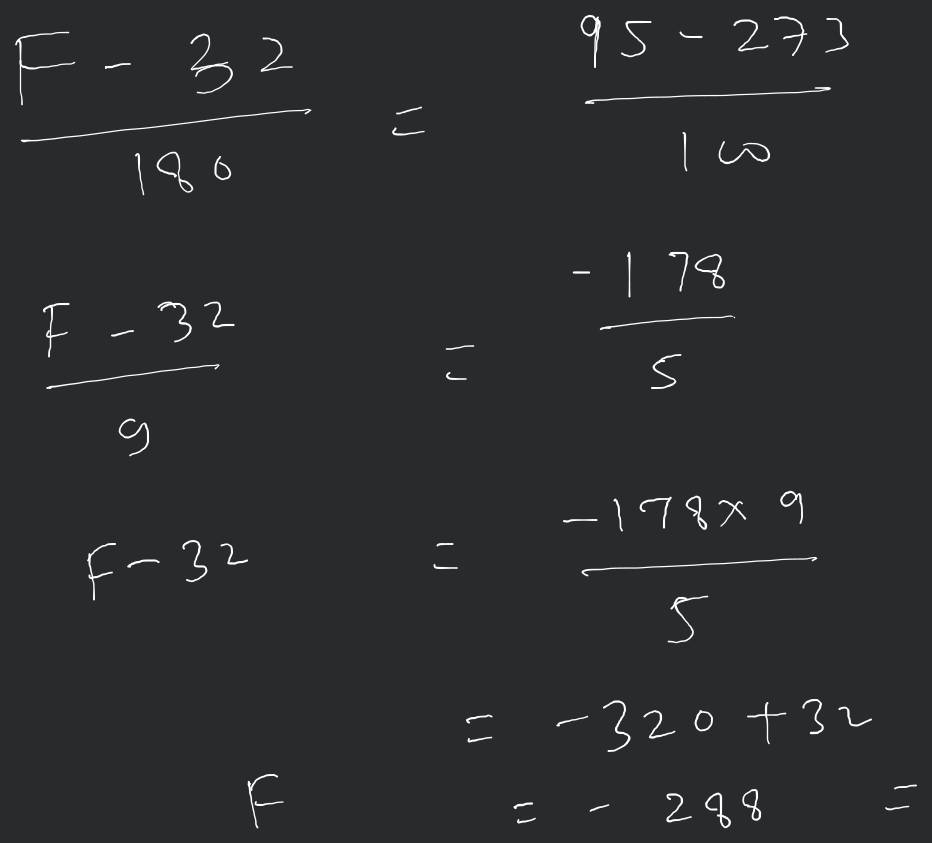 F - 32 / 180 = 95 - 273 / 100
F - 32 / 9 = -178 / 5
F - 32 = -178 x 9 / 5
= -320 + 32
F = - 288 =